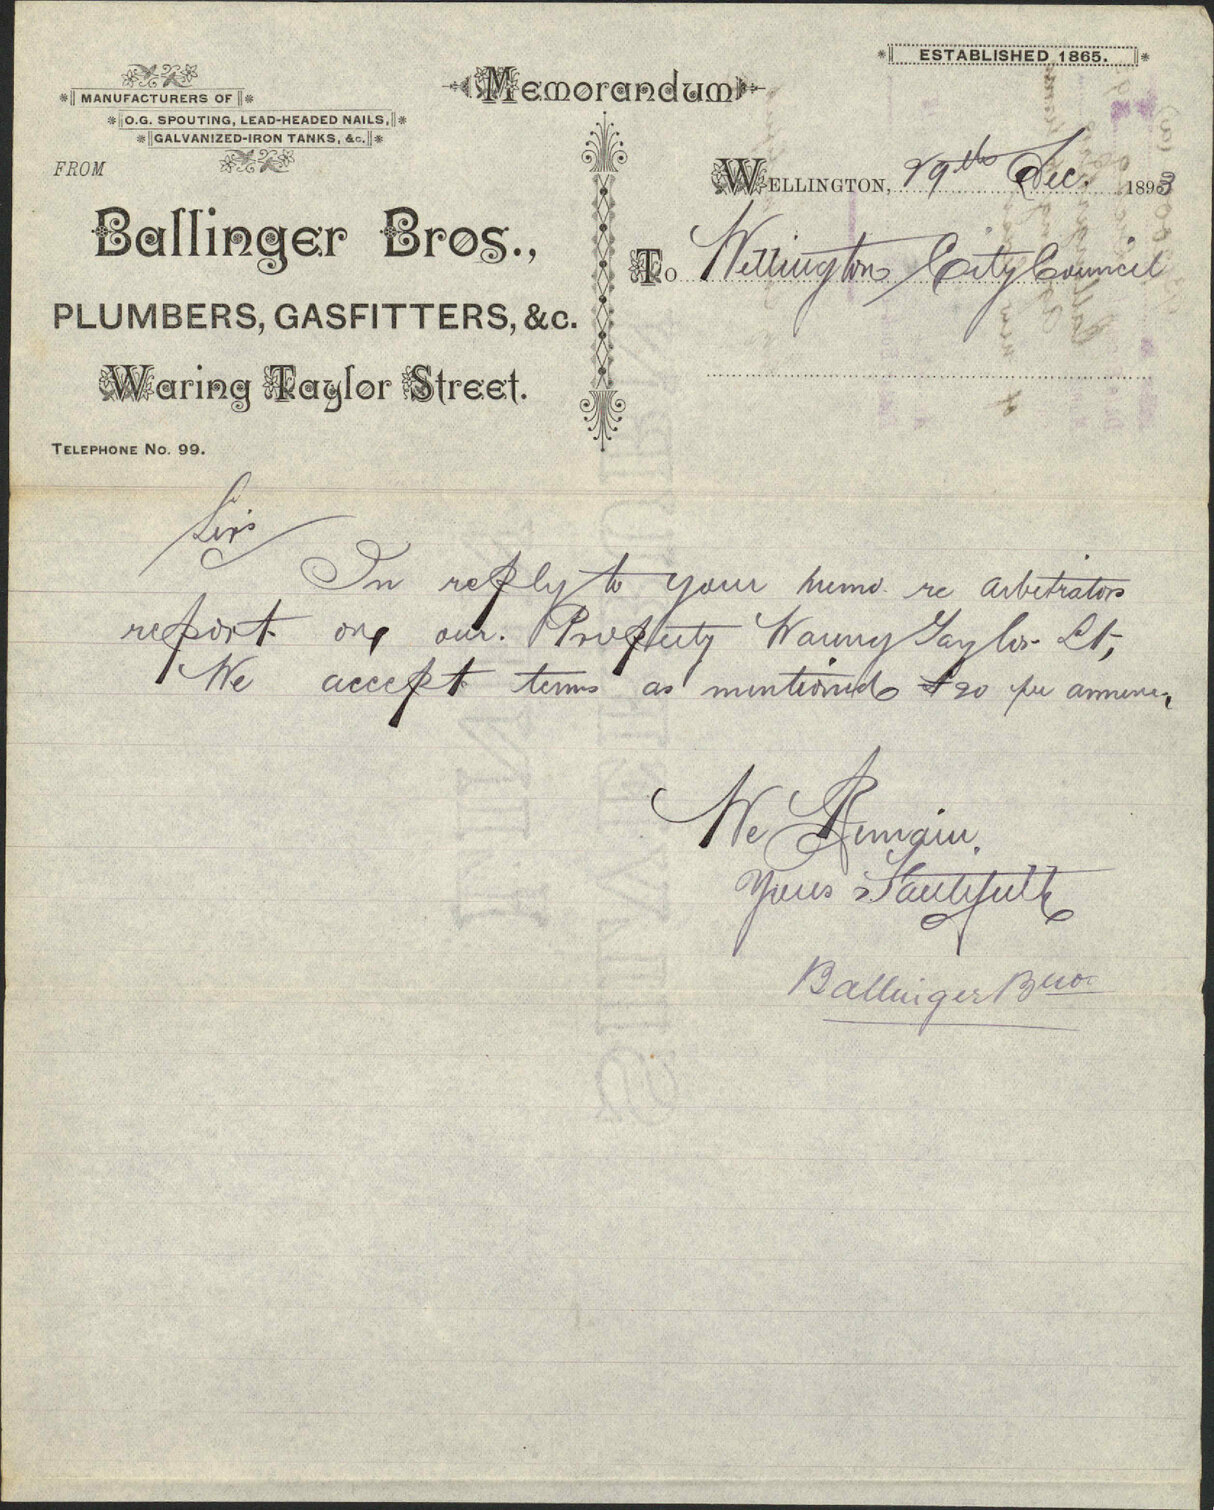 ESTABLISHED 1865.
Memorandum
MANUFACTURERS OF
O.G. SPOUTING, LEAD-HEADED NAILS,
GALVANIZED-IRON TANKS, &c.
FROM
Ballinger Bros.,
PLUMBERS, GASFITTERS, &c.
Waring Taylor Street.
TELEPHONE No. 99.
WELLINGTON, 29th Dec. 1893
To Wellington City Council
Sirs
In reply to your memo. re arbitrators
report on our. Property Waring Taylor St,
We accept terms as mentioned £20 per annum,
We Remain.
Yours Faithfully
Ballinger Bros